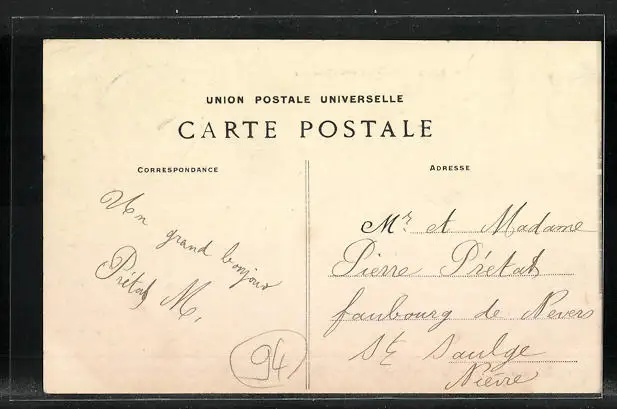 UNION POSTALE UNIVERSELLE
CARTE POSTALE
CORRESPONDANCE
ADRESSE
Un grand bonjour
Prétat M.
94
Mr et Madame
Pierre Prétat
faubourg de Nevers
St Saulge
Nièvre